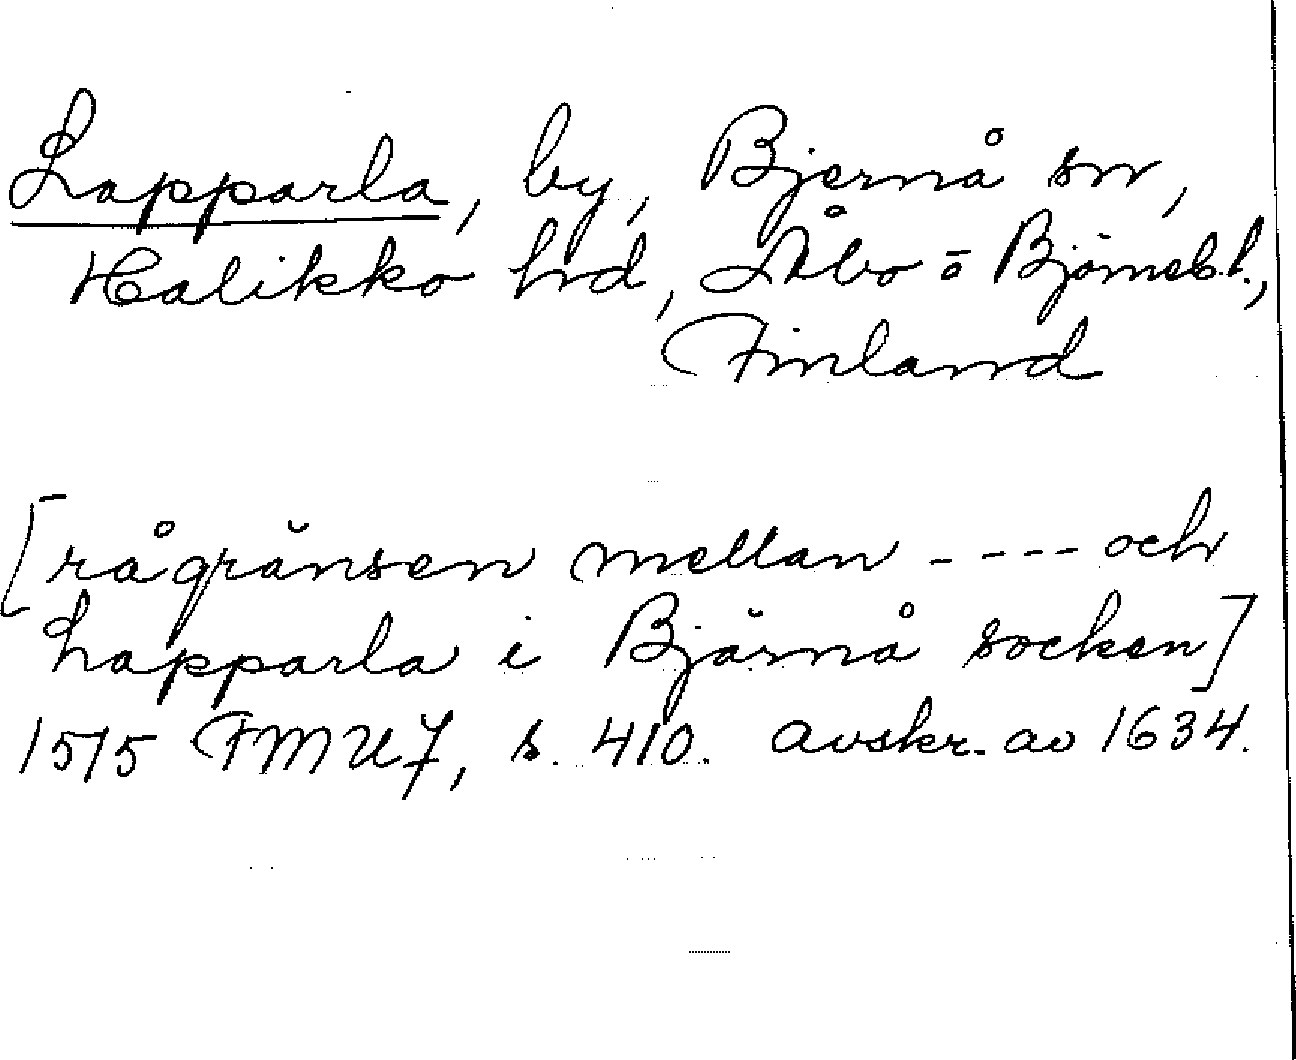 Lapparla, by, Bjernå sn,
Halikko hd, Åbo o Björneb. l.,
Finland
[rågränsen mellan - - - - och
Lapparla i Bjärnå socken]
1515 FMU 7, s. 410. Avskr. av 1634.